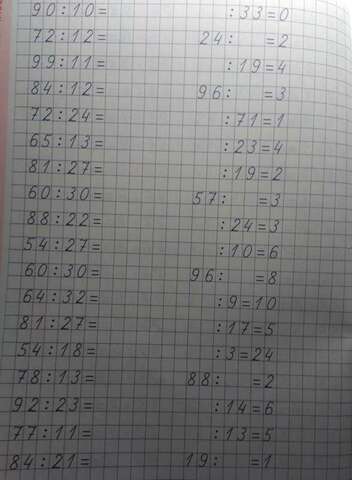 90:10= :33=0
72:12= 24: =2
99:11= :19=4
84:12= 96: =3
72:24= :71=1
65:13= :23=4
81:27= :19=2
60:30= 57: =3
88:22= :24=3
54:27= :10=6
60:30= 96: =8
64:32= :9=10
81:27= :17=5
54:18= :3=24
78:13= 88: =2
92:23= :14=6
77:11= :13=5
84:21= 19: =1